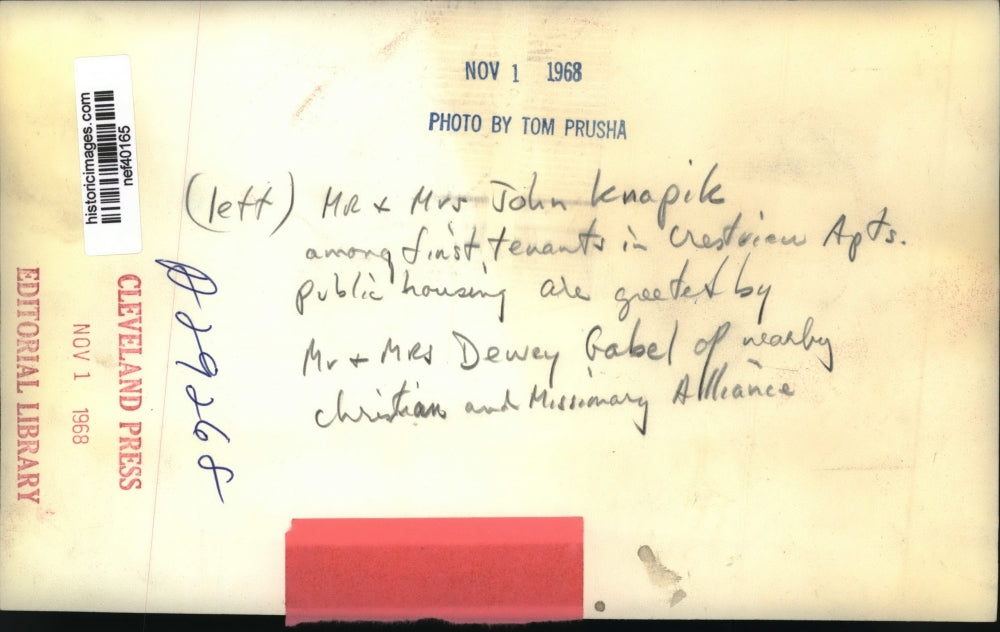 NOV 1 1968
PHOTO BY TOM PRUSHA
(left) MR & Mrs John Knapik
among first tenants in Crestview Apts.
public housing are greeted by
Mr & MRS Dewey Gabel of nearby
Christian and Missionary Alliance
historicimages.com
nef40165
CLEVELAND PRESS
NOV 1 1968
EDITORIAL LIBRARY